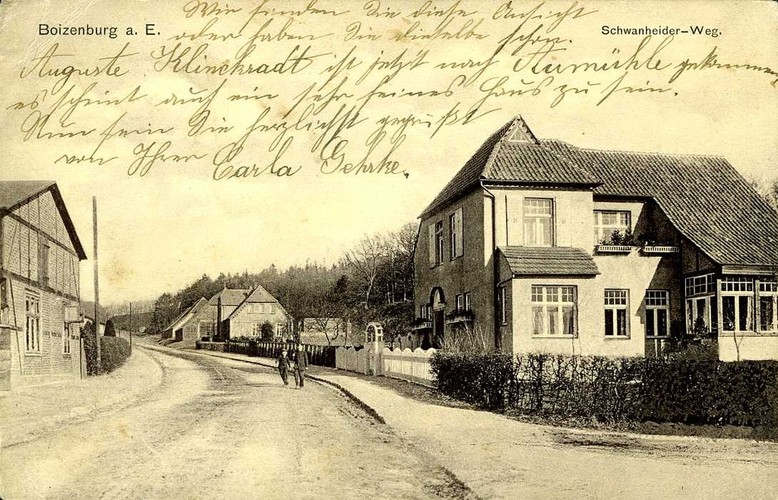 Boizenburg a. E.
Schwanheider-Weg.
Wir finden Sie diese Ansicht
oder haben Sie dieselbe schon.
Auguste Klinckradt ist jetzt nach Aumühle gekommen
es scheint auch ein sehr feines Haus zu sein.
Nun sein Sie herzlichst gegrüßt
von Ihrer Carla Gehrke.